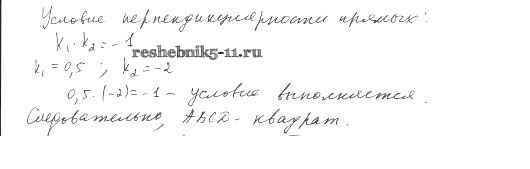 Условие перпендикулярности прямых:
k₁·k₂=-1
reshebnik5-11.ru
k₁=0,5 ; k₂=-2
0,5·(-2)=-1 - условие выполняется.
Следовательно, ABCD - квадрат.